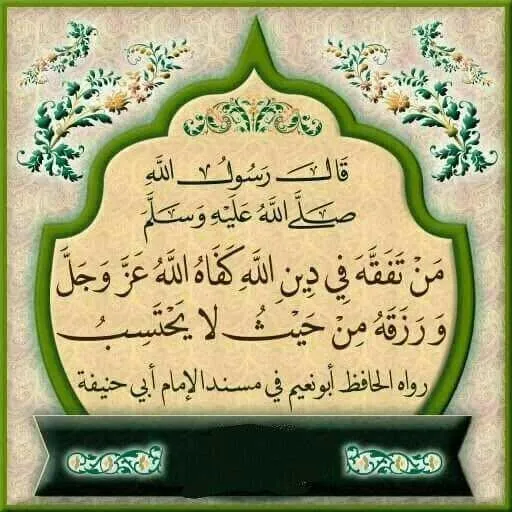 قَالَ رَسُولُ اللَّهِ
صَلَّى اللَّهُ عَلَيْهِ وَسَلَّمَ
مَنْ تَفَقَّهَ فِي دِينِ اللَّهِ كَفَاهُ اللَّهُ عَزَّ وَجَلَّ
وَرَزَقَهُ مِنْ حَيْثُ لَا يَحْتَسِبُ
رواه الحافظ أبونعيم في مسند الإمام أبي حنيفة